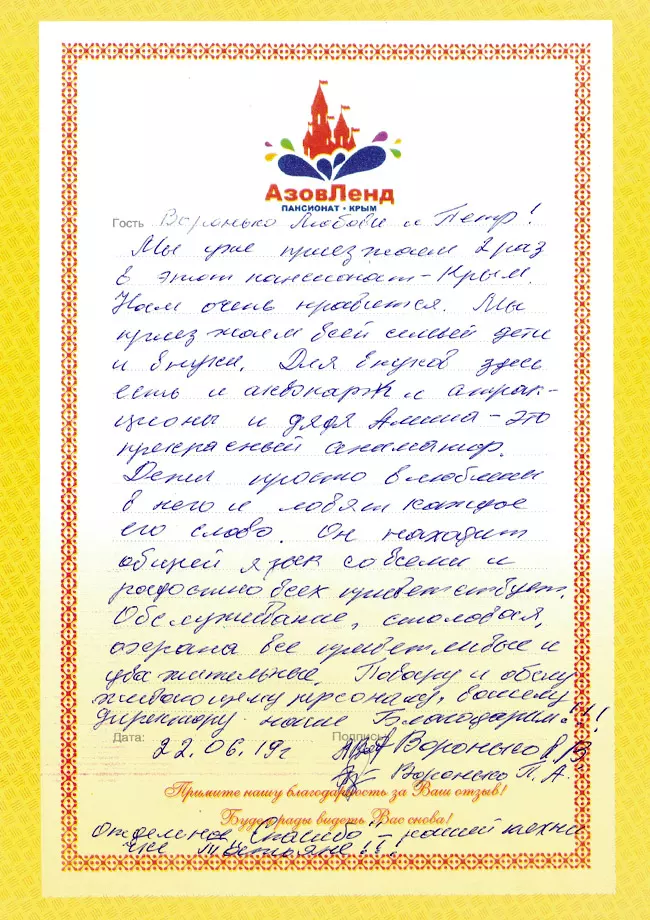 АзовЛенд
ПАНСИОНАТ • КРЫМ
Гость Воронько Любовь и Петр!
Мы уже приезжаем 2 раз
в этот пансионат - Крым.
Нам очень нравится. Мы
приезжаем всей семьей дети
и внуки. Для внуков здесь
есть и аквапарк и атрак-
ционы и дядя Амиша - это
прекрасный аниматор.
Дети просто влюблены
в него и ловят каждое
его слово. Он находит
общей язык со всеми и
радостно всех приветствует.
Обслуживание, столовая,
охрана все приветливые и
уважительные. Повару и обслу
живающему персоналу, вашему
директору наше Благодарим!!!
Дата: 22.06.19г Подпись: Воронько Л.В.
Воронько П.А.
Примите нашу благодарность за Ваш отзыв!
Будем рады видеть Вас снова!
Отдельное "Спасибо" - нашей техни
чке Татьяне!!!